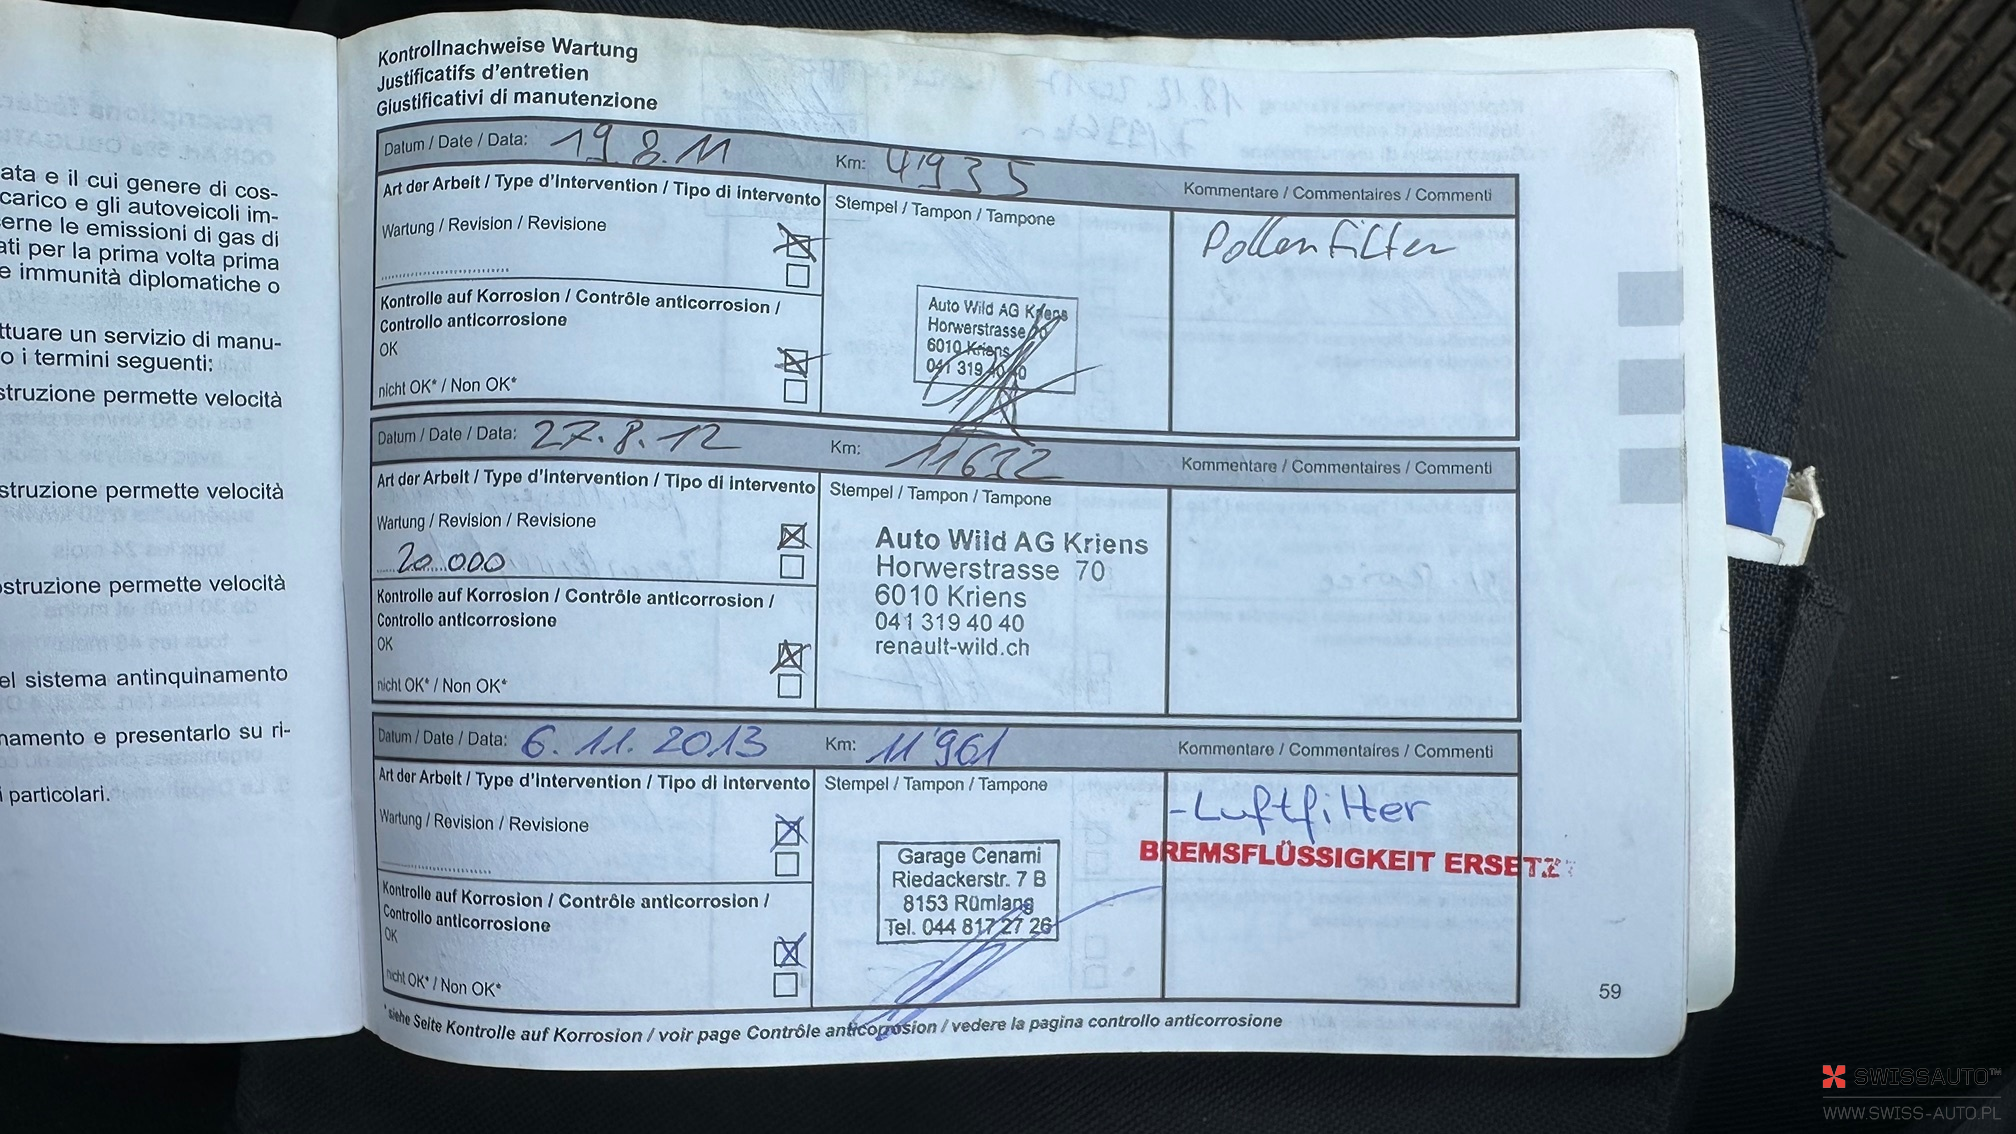 ata e il cui genere di cos-
carico e gli autoveicoli im-
erne le emissioni di gas di
ati per la prima volta prima
e immunità diplomatiche o
ttuare un servizio di manu-
o i termini seguenti:
struzione permette velocità
struzione permette velocità
ostruzione permette velocità
el sistema antinquinamento
namento e presentarlo su ri-
i particolari.
Kontrollnachweise Wartung
Justificatifs d'entretien
Giustificativi di manutenzione
Datum / Date / Data: 19 8.11 Km: 4'935 Kommentare / Commentaires / Commenti
Art der Arbeit / Type d'Intervention / Tipo di intervento Stempel / Tampon / Tampone
Wartung / Revision / Revisione
Pollenfilter
Kontrolle auf Korrosion / Contrôle anticorrosion /
Controllo anticorrosione
OK
nicht OK* / Non OK*
Auto Wild AG Kriens
Horwerstrasse 70
6010 Kriens
041 319 40 40
Datum / Date / Data: 27.8.12 Km: 11632 Kommentare / Commentaires / Commenti
Art der Arbeit / Type d'Intervention / Tipo di intervento Stempel / Tampon / Tampone
Wartung / Revision / Revisione
20.000
Kontrolle auf Korrosion / Contrôle anticorrosion /
Controllo anticorrosione
OK
nicht OK* / Non OK*
Auto Wild AG Kriens
Horwerstrasse 70
6010 Kriens
041 319 40 40
renault-wild.ch
Datum / Date / Data: 6.11.2013 Km: 11'961 Kommentare / Commentaires / Commenti
Art der Arbeit / Type d'Intervention / Tipo di intervento Stempel / Tampon / Tampone
Wartung / Revision / Revisione
Kontrolle auf Korrosion / Contrôle anticorrosion /
Controllo anticorrosione
OK
nicht OK* / Non OK*
Garage Cenami
Riedackerstr. 7 B
8153 Rümlang
Tel. 044 817 27 26
-Luftfilter
BREMSFLÜSSIGKEIT ERSETZ
*siehe Seite Kontrolle auf Korrosion / voir page Contrôle anticorrosion / vedere la pagina controllo anticorrosione
59
SWISSAUTO™
WWW.SWISS-AUTO.PL